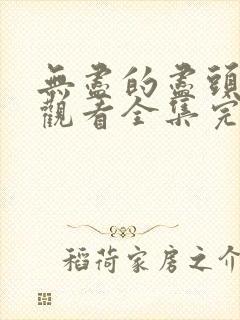 無盡的盡頭
觀看全集完
稻荷家房之介